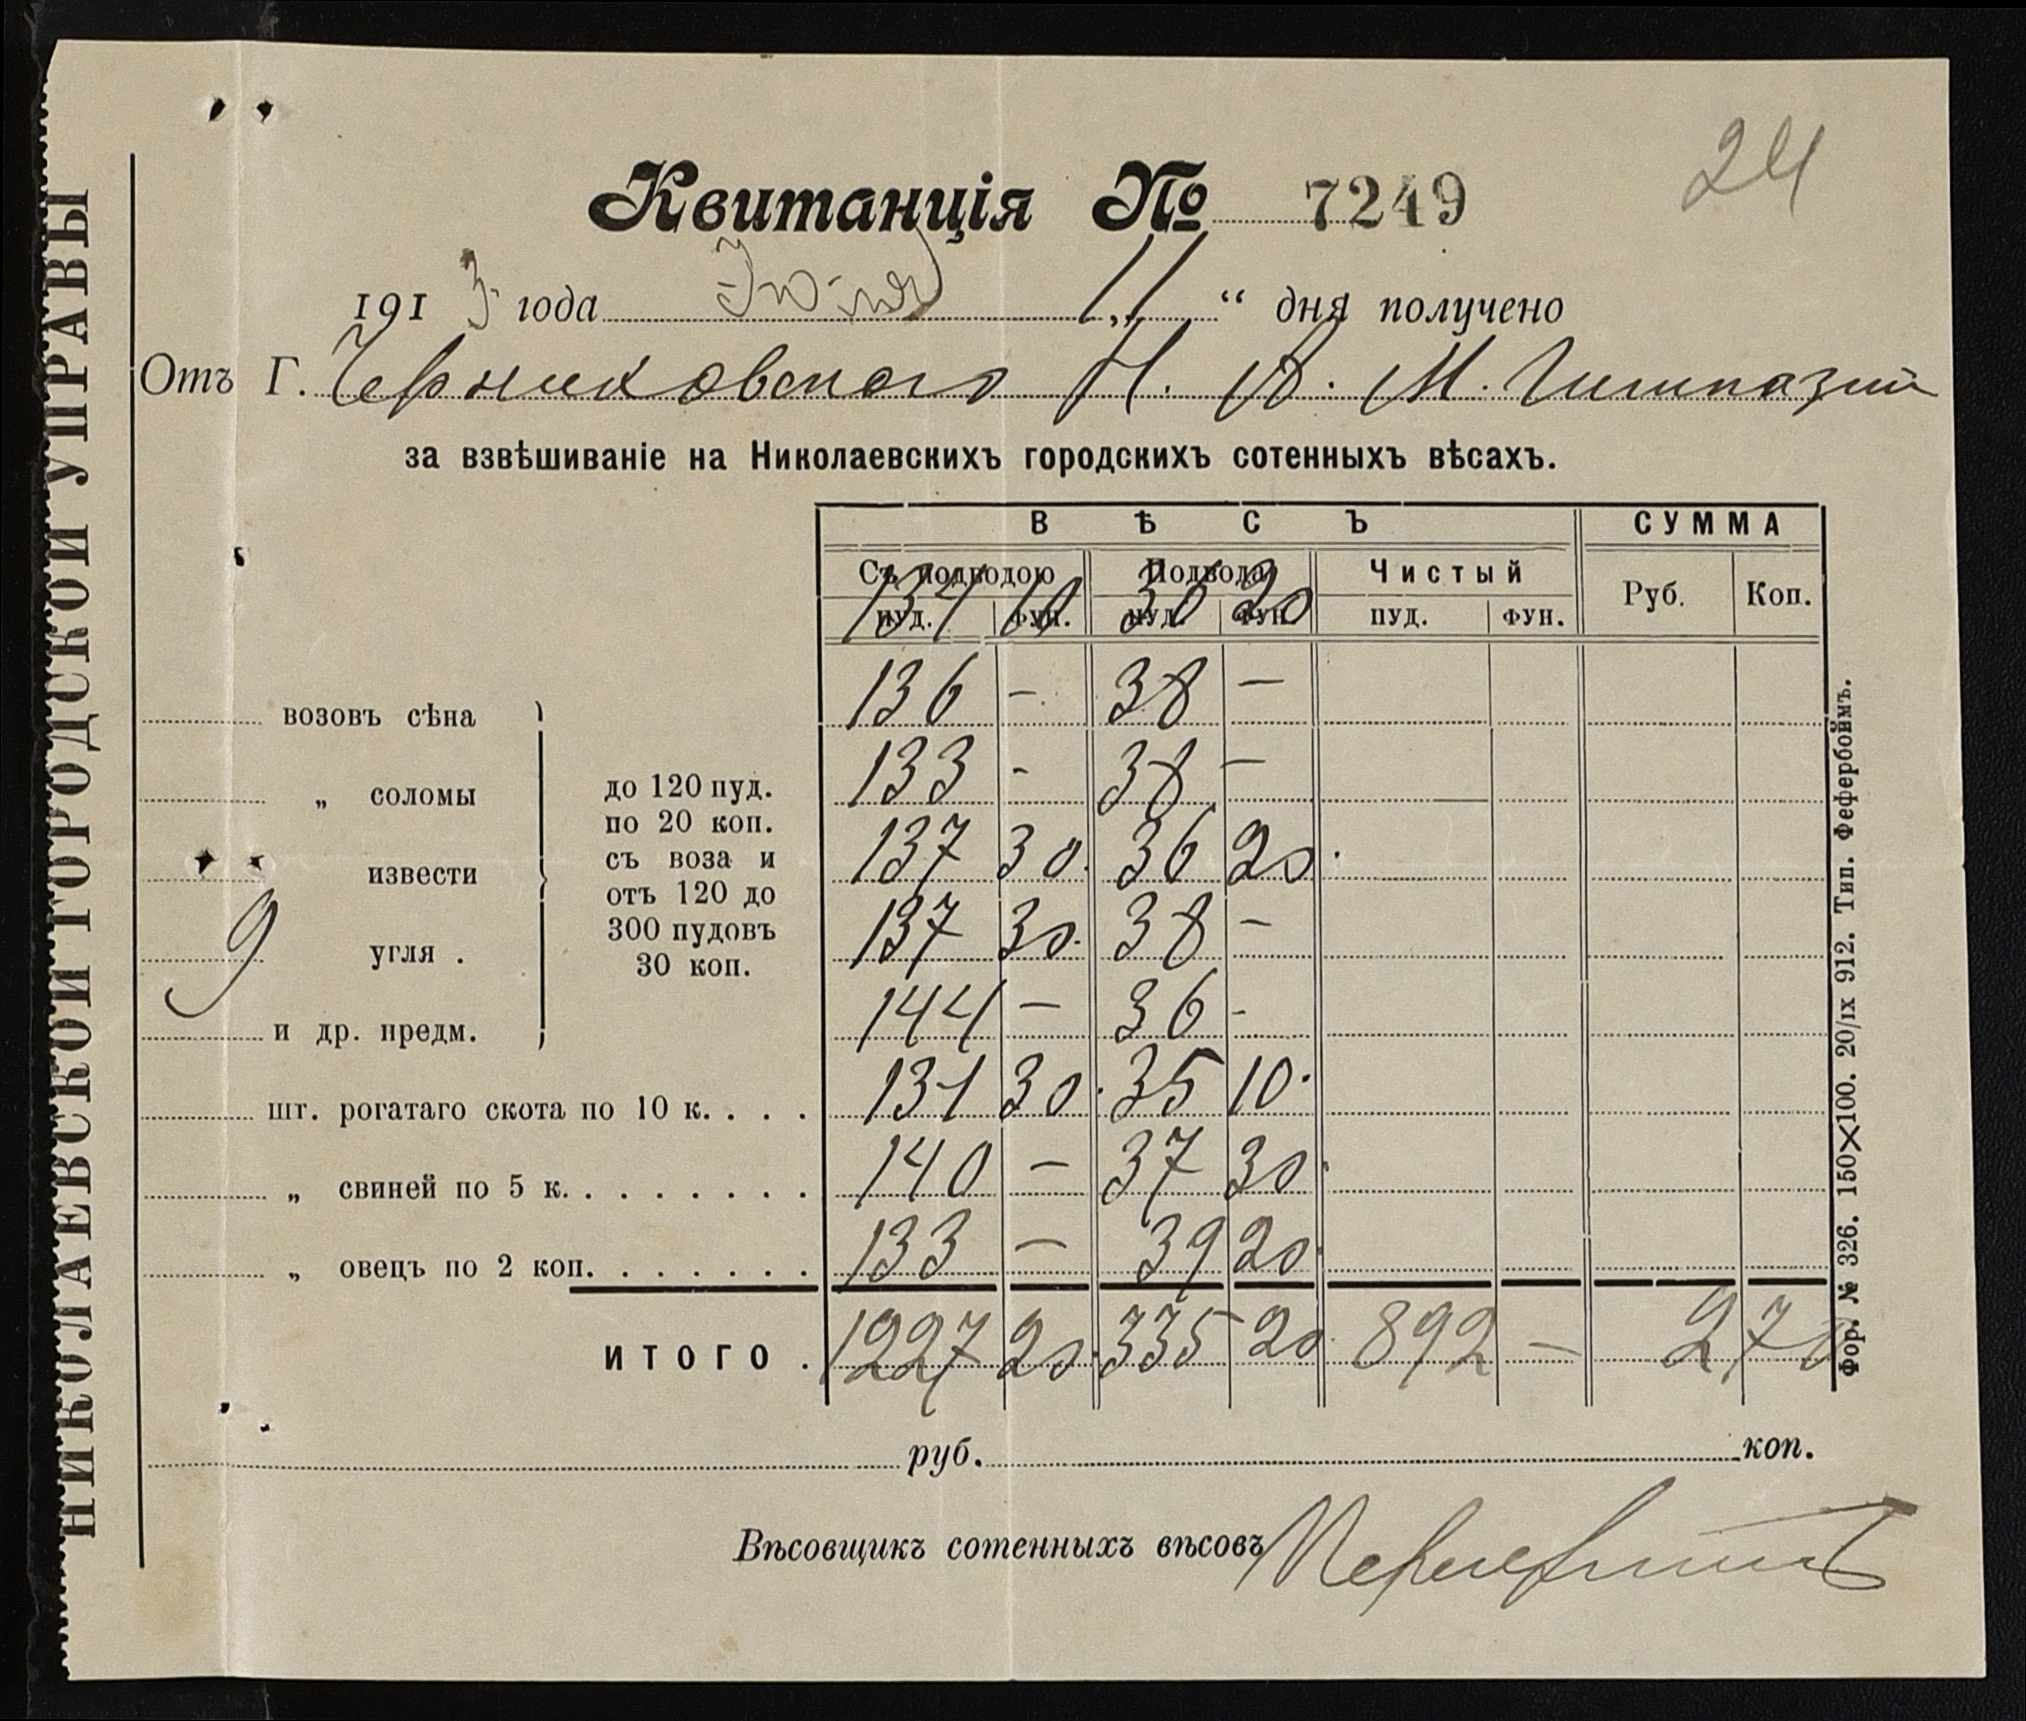 НИКОЛАЕВСКОЙ ГОРОДСКОЙ УПРАВЫ
24
Квитанція № 7249
1913 года Іюля „11“ дня получено
Отъ Г. Черниковского Н. А. М. Гимназии
за взвѣшиваніе на Николаевскихъ городскихъ сотенныхъ вѣсахъ.
ВѢСЪ СУММА
Съ подводою Подвода Чистый Руб. Коп.
пуд. фун. пуд. фун. пуд. фун.
134 10 36 20
возовъ сѣна 136 - 38 -
„ соломы 133 - 38 -
извести 137 30 36 20
9 угля . 137 30 38 -
и др. предм. 144 - 36 -
до 120 пуд.
по 20 коп.
съ воза и
отъ 120 до
300 пудовъ
30 коп.
шт. рогатаго скота по 10 к. . . . 131 30 35 10
„ свиней по 5 к. . . . . . . . 140 - 37 30
„ овецъ по 2 коп. . . . . . . 133 - 39 20
ИТОГО . 1227 20 335 20 892 - 2 70
руб. коп.
Вѣсовщикъ сотенныхъ вѣсовъ
Фор. № 326. 150×100. 20/ıx 912. Тип. Фефербоймъ.